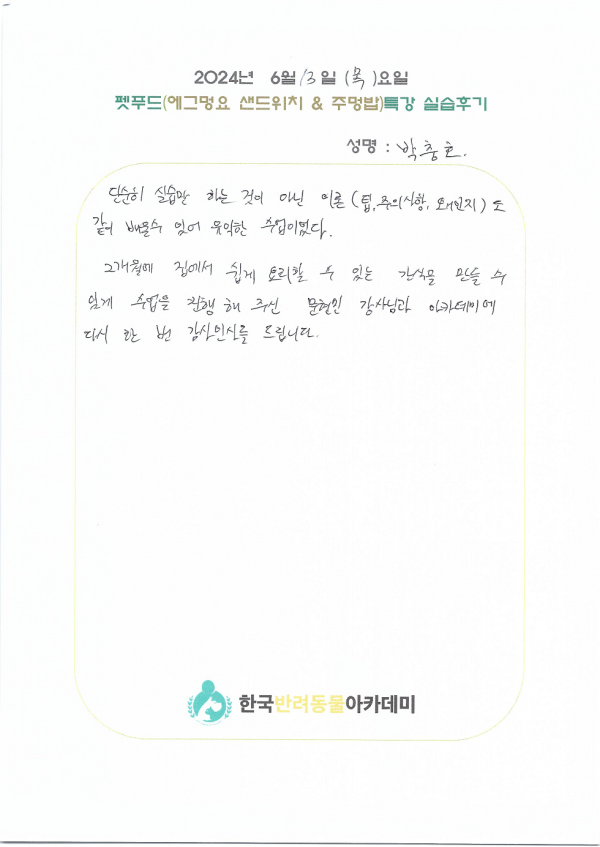 2024년 6월 13일 (목)요일
펫푸드(에그멍요 샌드위치 & 주멍밥)특강 실습후기
성명 : 박충호.
단순히 실습만 하는 것이 아닌 이론(팁,주의사항, 왜인지)도
같이 배울수 있어 유익한 수업이었다.
그개월에 집에서 쉽게 요리할 수 있는 간식을 만들 수
있게 수업을 진행 해 주신 문현인 강사님과 아카데미에
다시 한 번 감사인사를 드립니다.
한국반려동물아카데미